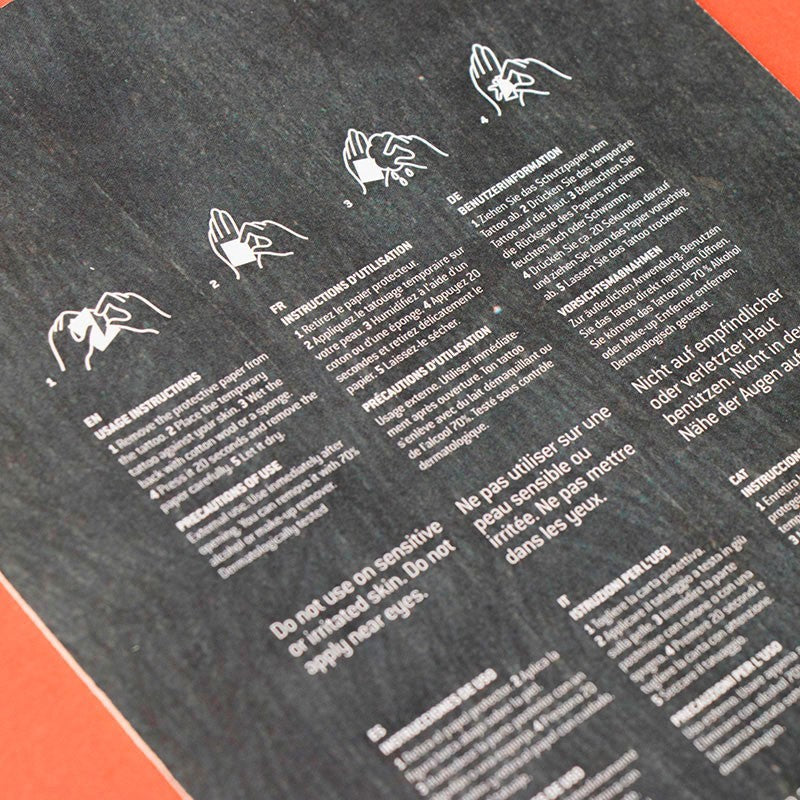 1
2
3
4
EN
USAGE INSTRUCTIONS
1 Remove the protective paper from
the tattoo. 2 Place the temporary
tattoo against your skin. 3 Wet the
back with cotton wool or a sponge.
4 Press it 20 seconds and remove the
paper carefully. 5 Let it dry.
PRECAUTIONS OF USE
External use. Use immediately after
opening. You can remove it with 70%
alcohol or make-up remover.
Dermatologically tested
Do not use on sensitive
or irritated skin. Do not
apply near eyes.
FR
INSTRUCTIONS D'UTILISATION
1 Retirez le papier protecteur.
2 Appliquez le tatouage temporaire sur
votre peau. 3 Humidifiez à l'aide d'un
coton ou d'une éponge. 4 Appuyez 20
secondes et retirez délicatement le
papier. 5 Laissez-le sécher.
PRÉCAUTIONS D'UTILISATION
Usage externe. Utiliser immédiate-
ment après ouverture. Ton tattoo
s'enlève avec du lait démaquillant ou
de l'alcool 70%. Testé sous contrôle
dermatologique.
Ne pas utiliser sur une
peau sensible ou
irritée. Ne pas mettre
dans les yeux.
DE
BENUTZERINFORMATION
1 Ziehen Sie das Schutzpapier vom
Tattoo ab. 2 Drücken Sie das temporäre
Tattoo auf die Haut. 3 Befeuchten Sie
die Rückseite des Papiers mit einem
feuchten Tuch oder Schwamm.
4 Drücken Sie ca. 20 Sekunden darauf
und ziehen Sie dann das Papier vorsichtig
ab. 5 Lassen Sie das Tattoo trocknen.
VORSICHTSMAßNAHMEN
Zur äußerlichen Anwendung. Benutzen
Sie das Tattoo direkt nach dem Öffnen.
Sie können das Tattoo mit 70 % Alkohol
oder Make-up Enferner entfernen.
Dermatologisch getestet.
Nicht auf empfindlicher
oder verletzter Haut
benützen. Nicht in de
Nähe der Augen auf
ES
INSTRUCCIONES DE USO
IT
ISTRUZIONI PER L'USO
1 Togliere la carta protettiva.
2 Applicare il tatuaggio a testa in giù
sulla pelle. 3 Inumidire la parte
posteriore con cotone o con una
spugna. 4 Premere 20 secondi e
togliere la carta con attenzione.
PRECAUZIONI PER L'USO
CAT
INSTRUCCION
1 Enretira